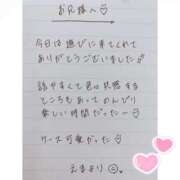 お兄様へ♡
今日は遊びに来てくれて
ありがとうございました
話やすくて色々共感する
ところもあってのんびり
楽しい時間だったー
ケース可愛かった♡
えまより